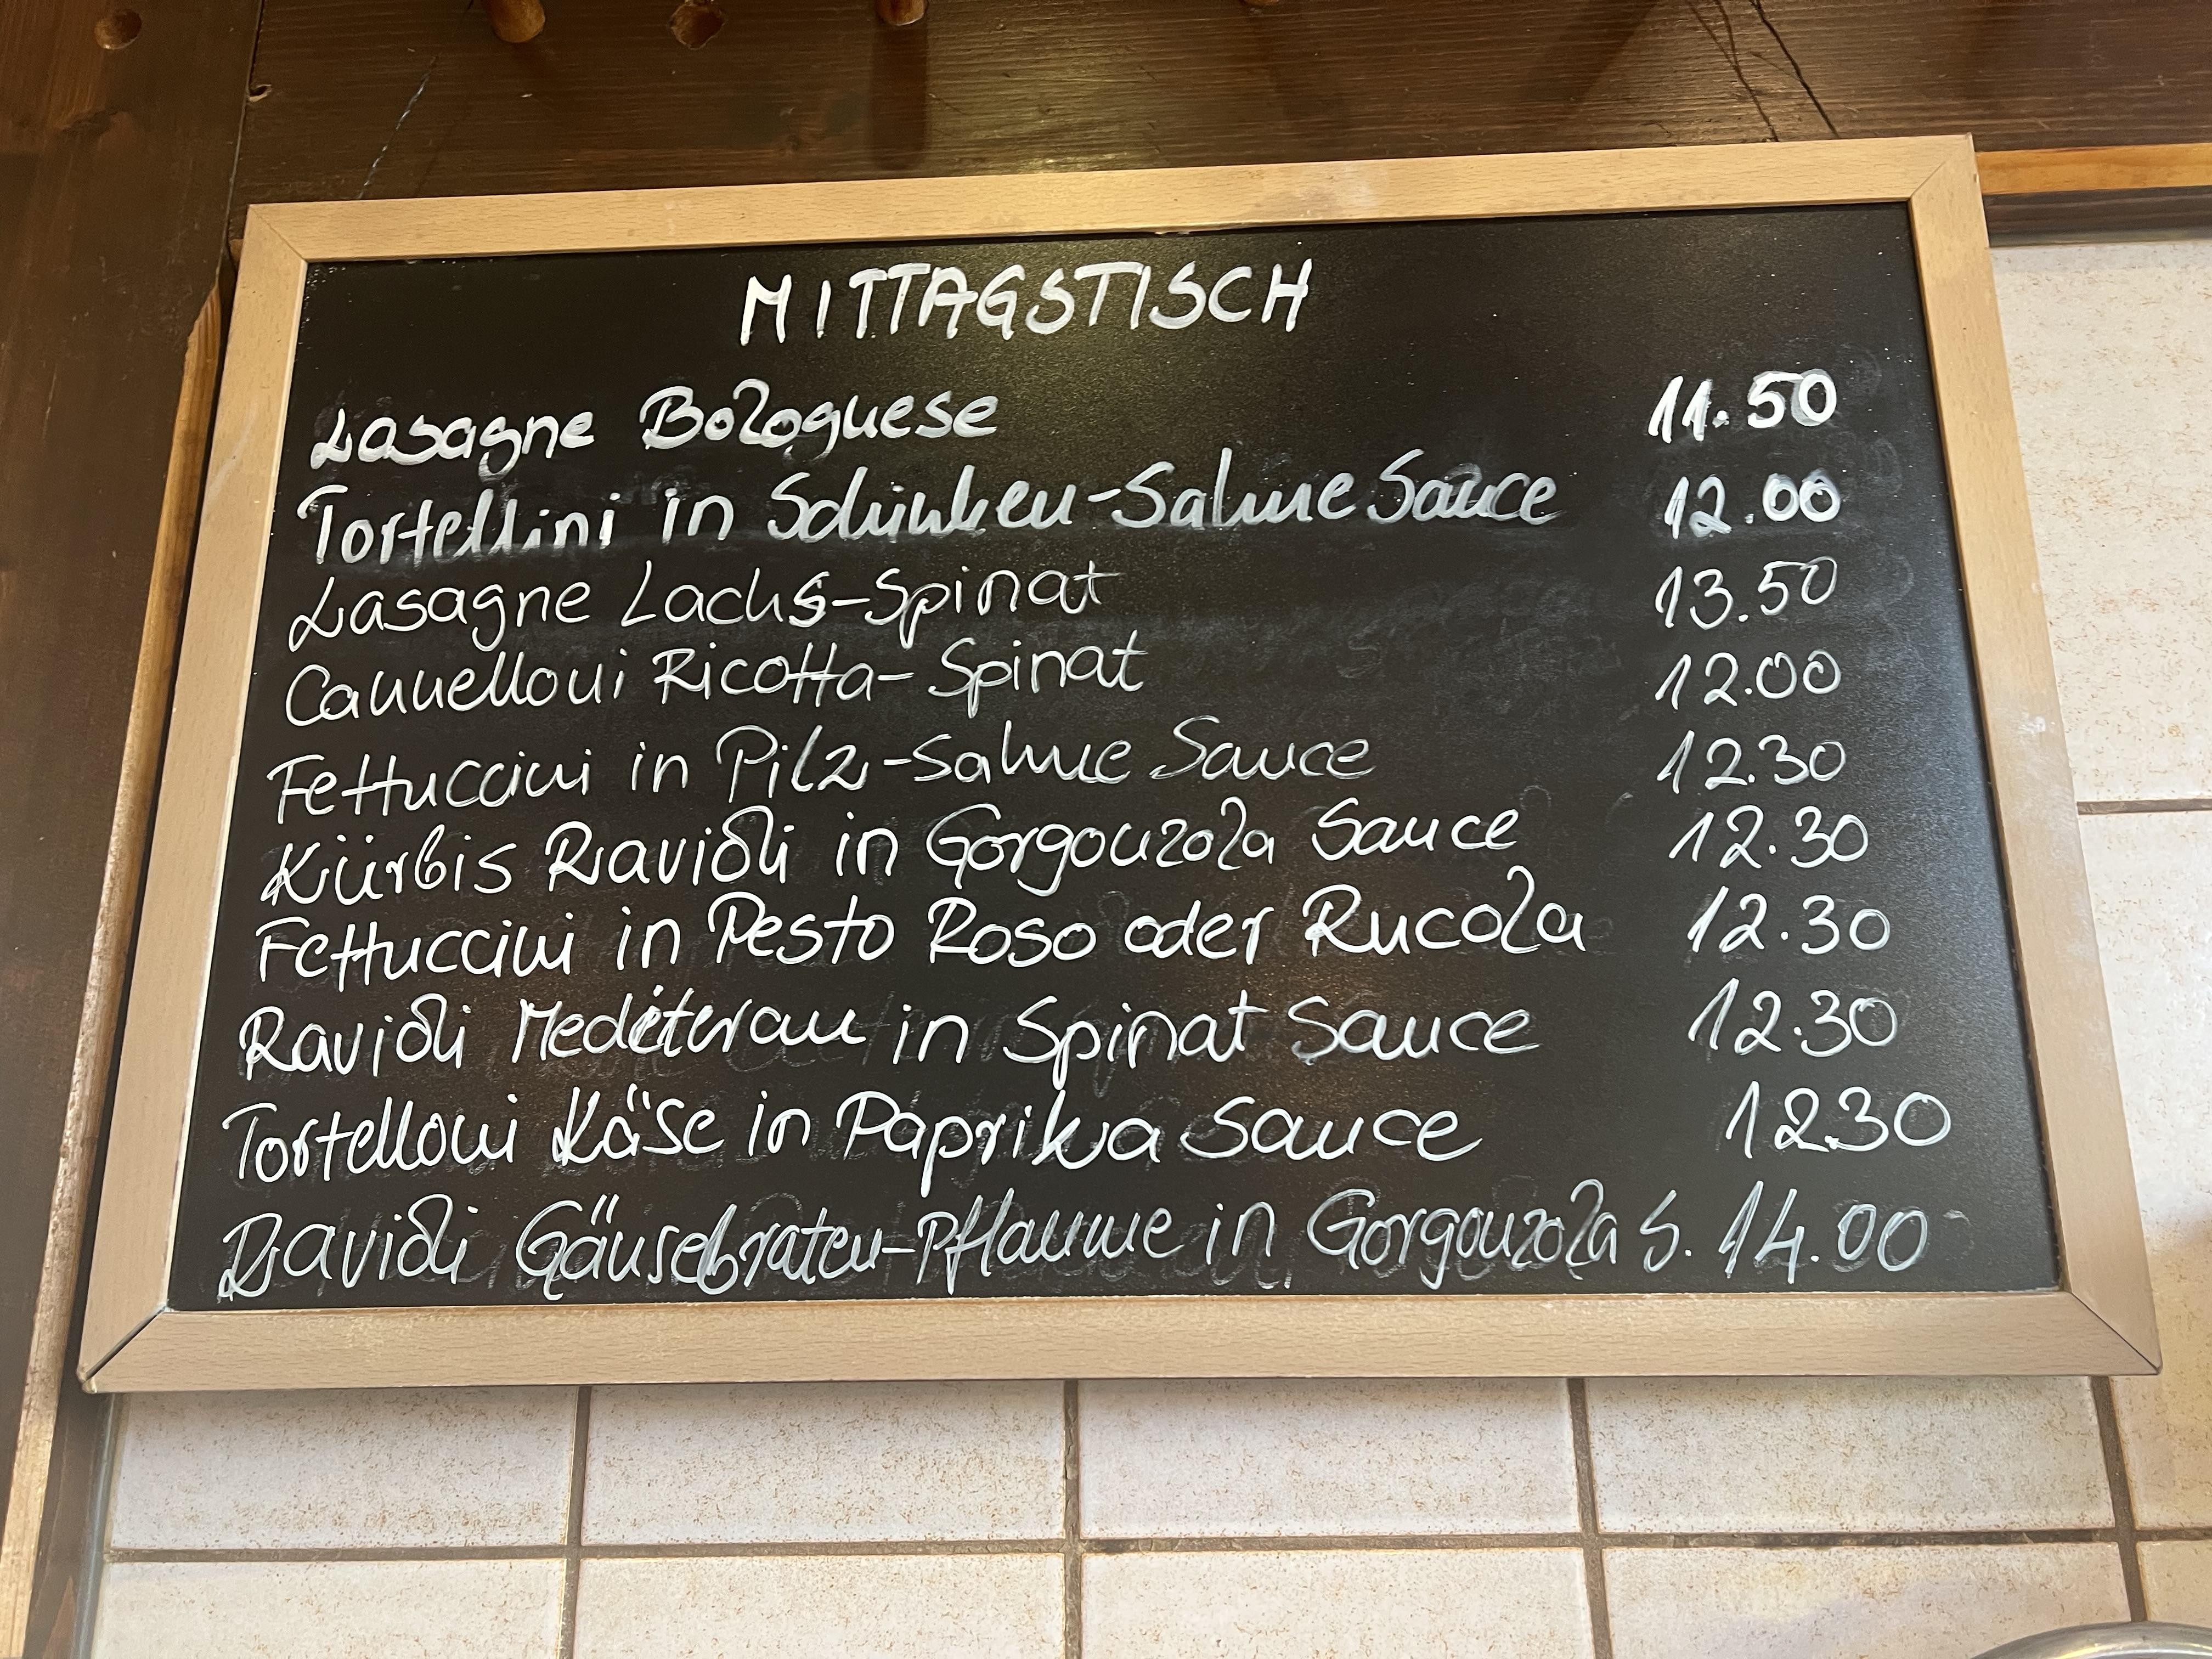 MITTAGSTISCH
Lasagne Bolognese 11.50
Tortellini in Schinken-Sahne Sauce 12.00
Lasagne Lachs-Spinat 13.50
Cannelloni Ricotta-Spinat 12.00
Fettuccini in Pilz-Sahne Sauce 12.30
Kürbis Ravioli in Gorgonzola Sauce 12.30
Fettuccini in Pesto Roso oder Rucola 12.30
Ravioli Mediteran in Spinat Sauce 12.30
Tortelloni Käse in Paprika Sauce 12.30
Ravioli Gänsebraten-Pflaume in Gorgonzola S. 14.00